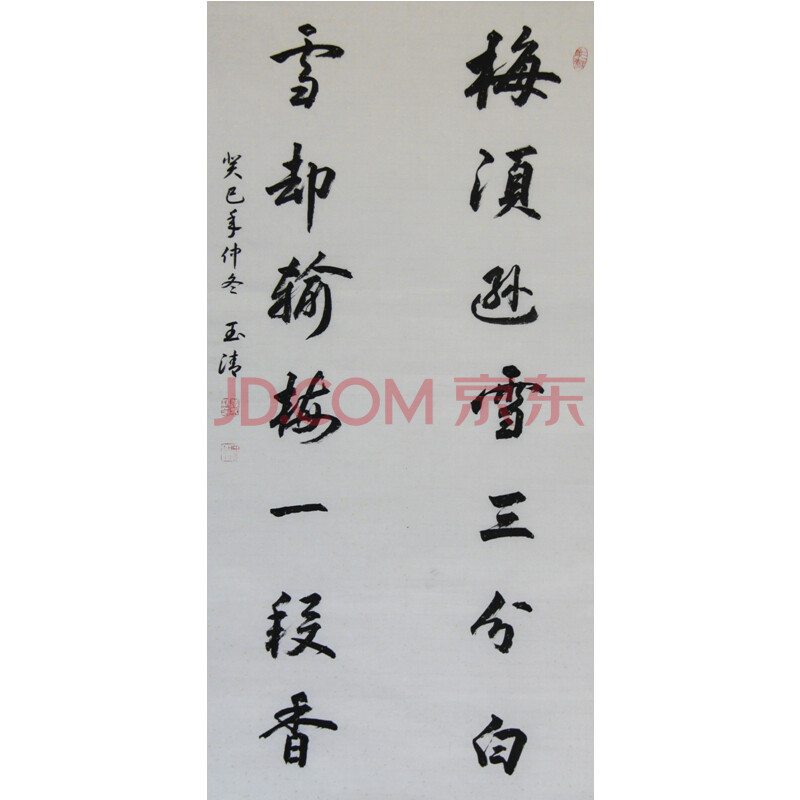 梅須遜雪三分白
雪却输梅一段香
癸巳年仲冬 玉清
JD.COM 京东